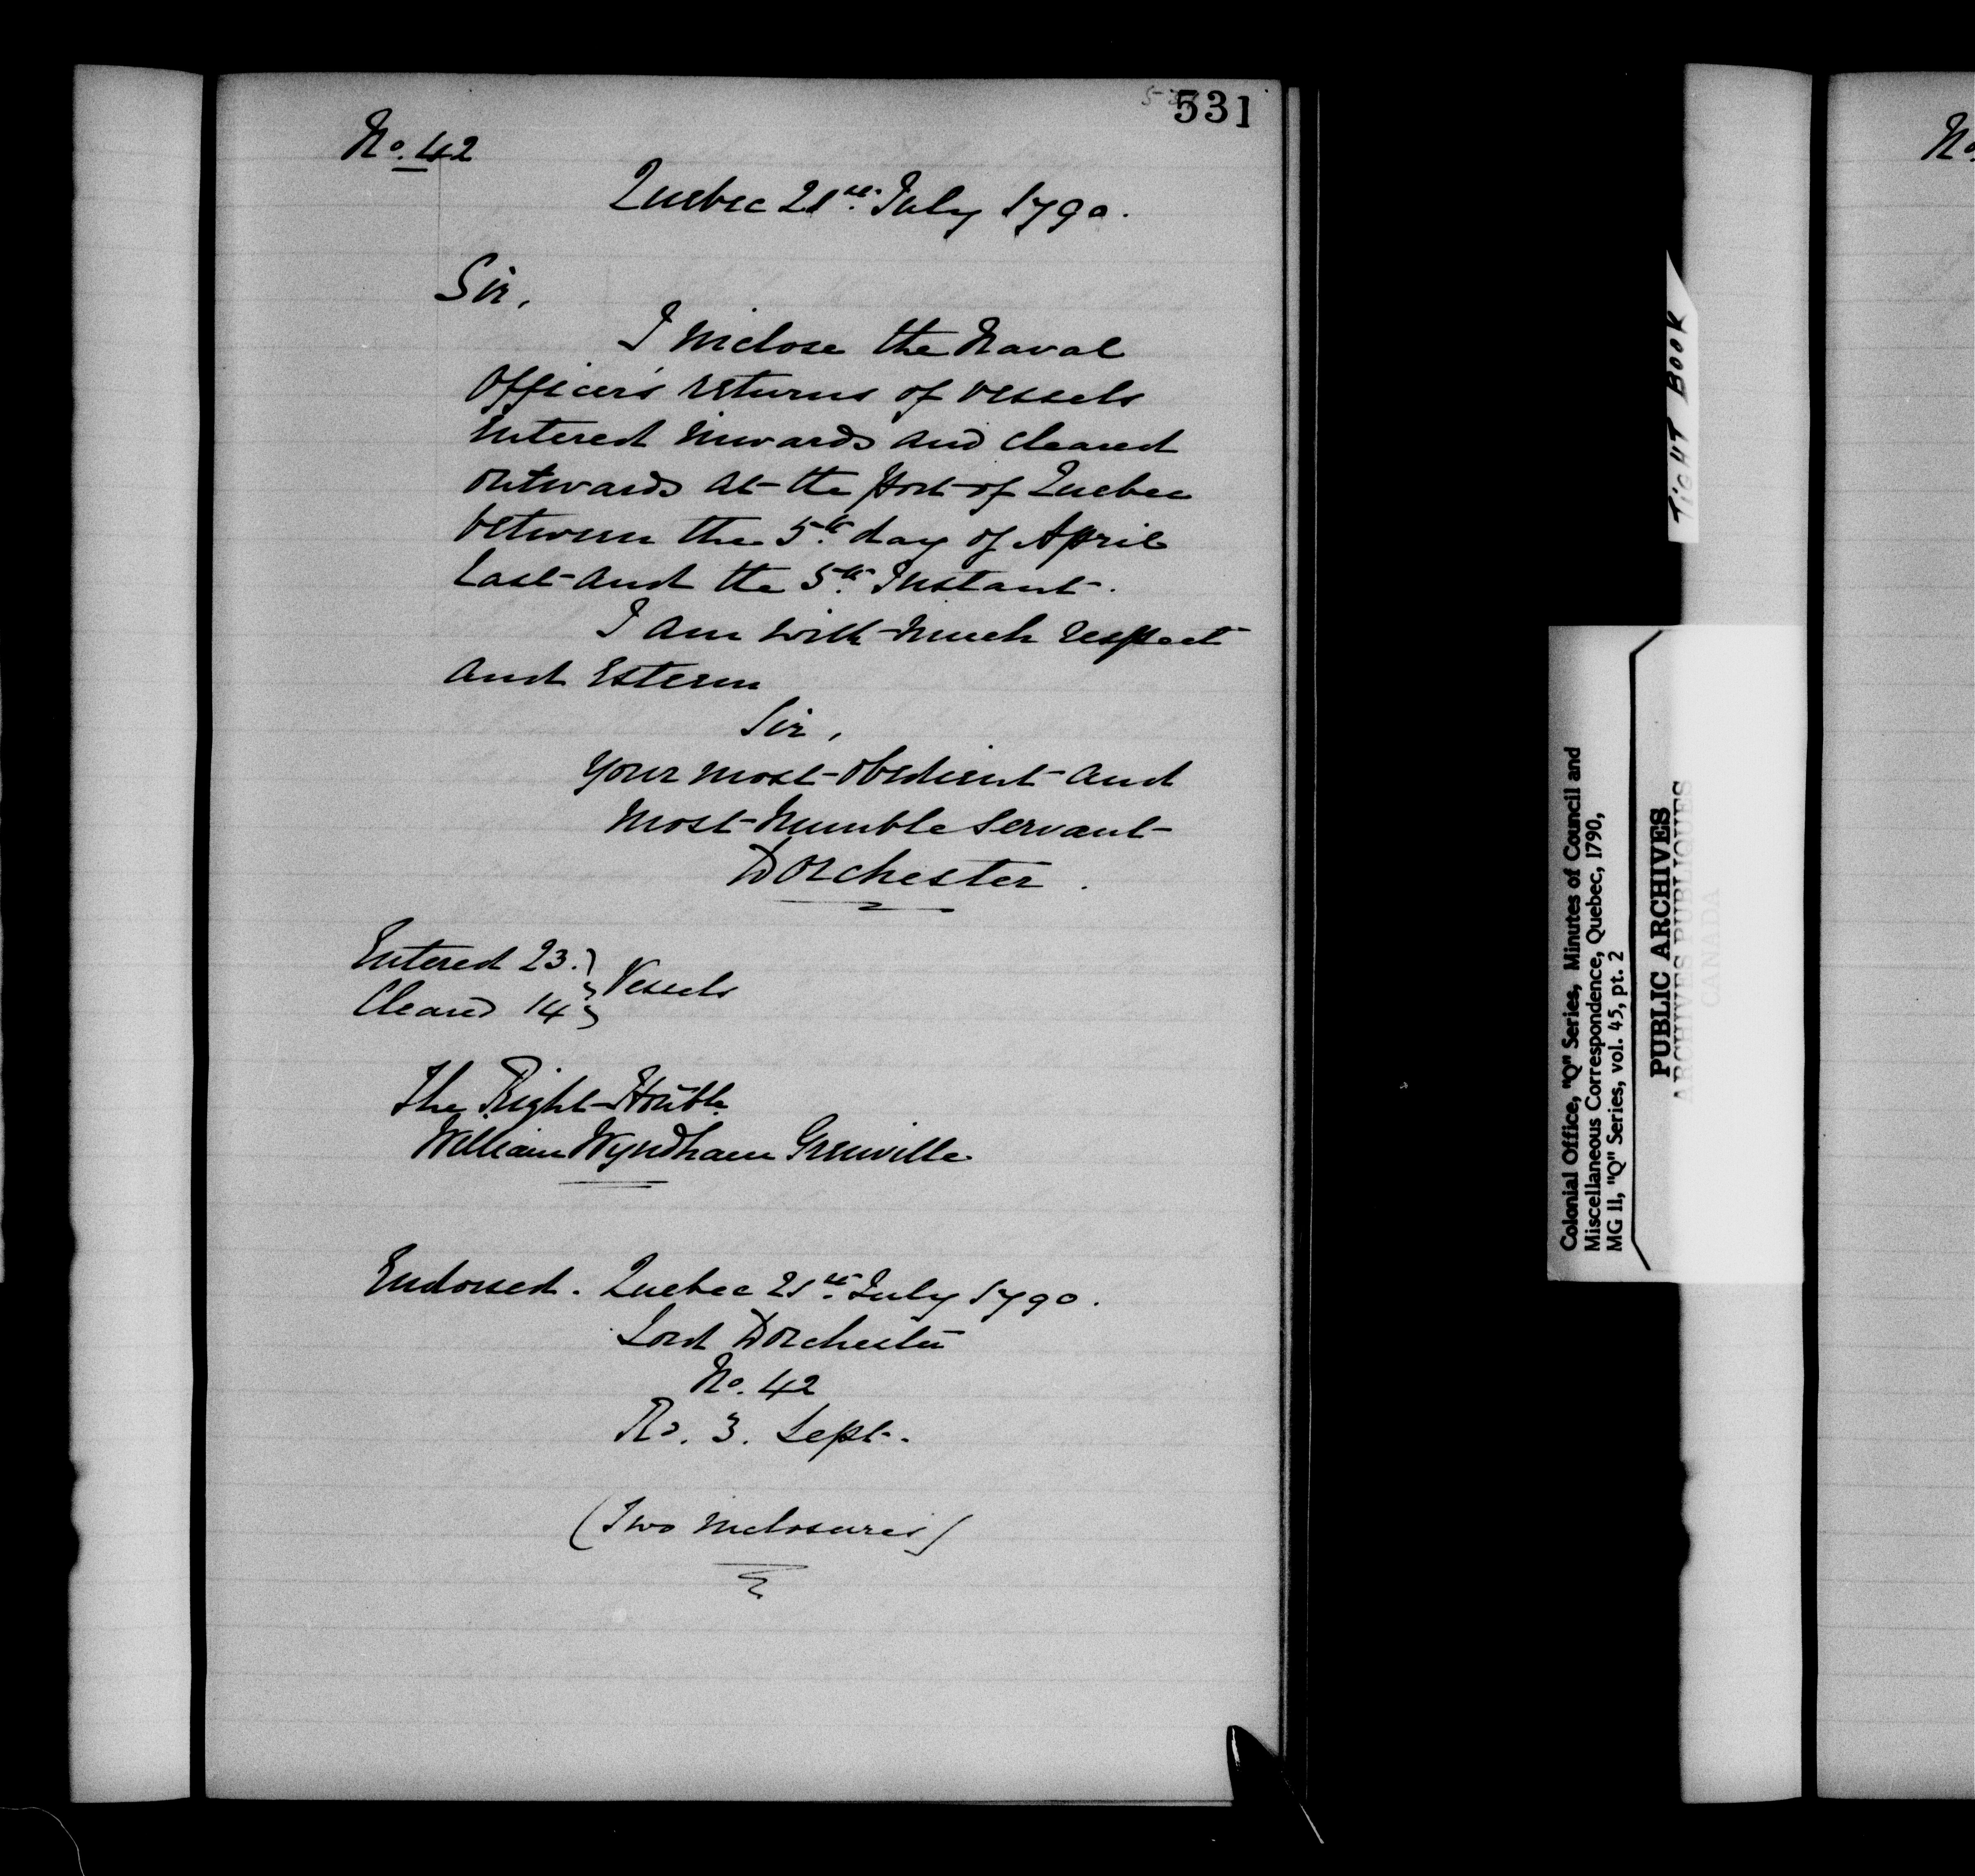 531
No. 42
Quebec 21st. July 1790.
Sir,
I inclose the Naval
Officer's returns of vessels
entered inwards and cleared
outwards at the port of Quebec
between the 5th day of April
last and the 5th. Instant.
I am with much respect
and Esteem
Sir,
Your most obedient and
most humble servant
Dorchester.
Entered 23.
Cleared 14 } Vessels
The Right Honble.
William Wyndham Grenville
Endorsed. Quebec 21st. July 1790.
Lord Dorchester
No. 42
Rd. 3. Sept.
(Two inclosures)
TIGHT BOOK
Colonial Office, "Q" Series, Minutes of Council and
Miscellaneous Correspondence, Quebec, 1790,
MG 11, "Q" Series, vol. 45, pt. 2
PUBLIC ARCHIVES
ARCHIVES PUBLIQUES
CANADA
No.